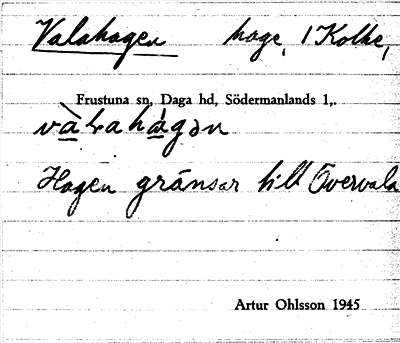 Valahagen hage, 1 Kolke,
Frustuna sn, Daga hd, Södermanlands l,.
và̱lahá̱gən
Hagen gränsar till Övervala
Artur Ohlsson 1945